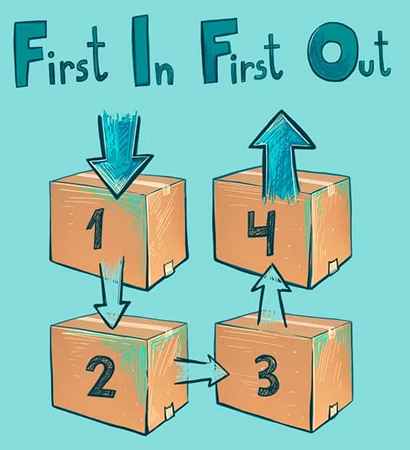 First In First Out
1
4
2
3